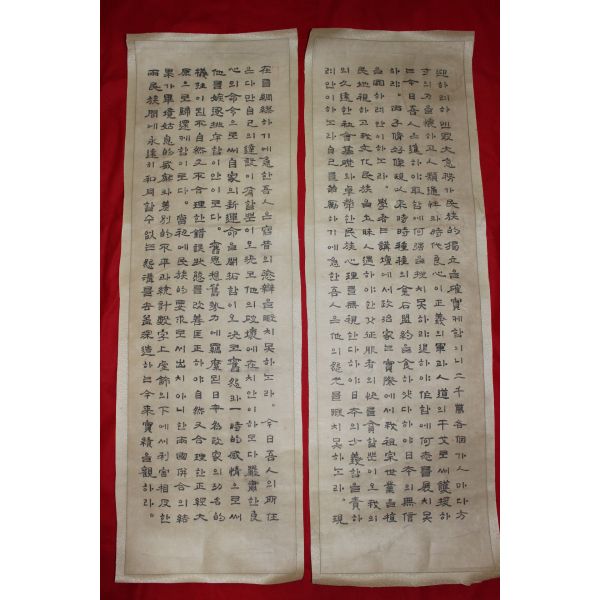 迎하리하면最大急務가民族的獨立을確實케함이니二千萬各個가人마다方
寸의刃을懷하고人類通性과時代良心이正義의軍과人道의干戈로써護援하
는今日吾人은進하야取함에何强을挫치못하랴退하야作함에何志를展치못
하랴。丙子修好條規以來時時種種의金石盟約을食하얏다하야日本의無信
을罪하려안이하노라。學者는講壇에서政治家는實際에서我祖宗世業을植
民地視하고我文化民族을土昧人遇하야한갓征服者의快를貪할뿐이오我
의久遠한社會基礎와卓犖한民族心理를無視한다하야日本의少義함을責하
려안이하노라自己를策勵하기에急한吾人은他의怨尤를暇치못하노라。現
在를綢繆하기에急한吾人은宿昔의懲辯을暇치못하노라。今日吾人의所任
은다만自己의建設이有할뿐이오決코他의破壞에在치안이하도다嚴肅한良
心의命令으로써自家의新運命을開拓함이오決코舊怨과一時的感情으로써
他를嫉逐排斥함이안이로다。舊思想舊勢力에羈縻된日本爲政家의功名的
犧牲이된不自然又不合理한錯誤狀態를改善匡正하야自然又合理한正經大
原으로歸還케함이로다。當初에民族的要求로서出치아니한兩國倂合의結
果가畢竟姑息的威壓과差別的不平과統計數字上虛飾의下에서利害相反한
兩民族間에永遠히和同할수없는怨溝를去益深造하는今來實績을觀하라。